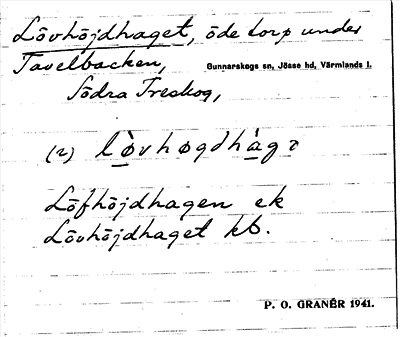 Lövhöjdhaget, öde torp under
Tavelbacken,
Gunnarskogs sn, Jösse hd, Värmlands l.
Södra Treskog,
(2) lòvhøgdhàgə
Löfhöjdhagen ek
Lövhöjdhaget kb.
P. O. GRANÉR 1941.